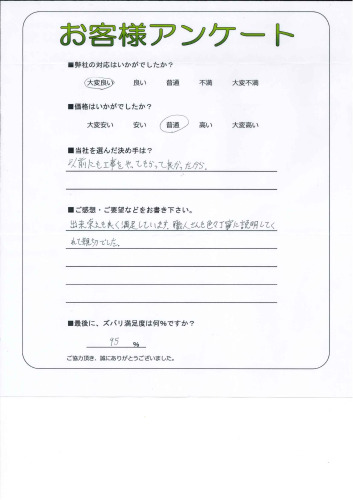 お客様アンケート
■弊社の対応はいかがでしたか？
大変良い 良い 普通 不満 大変不満
■価格はいかがでしたか？
大変安い 安い 普通 高い 大変高い
■当社を選んだ決め手は？
以前にも工事をやってもらって良かったから。
■ご感想・ご要望などをお書き下さい。
出来栄えも良く満足しています。職人さんも色々丁寧に説明してく
れて親切でした。
■最後に、ズバリ満足度は何％ですか？
95 ％
ご協力頂き、誠にありがとうございました。